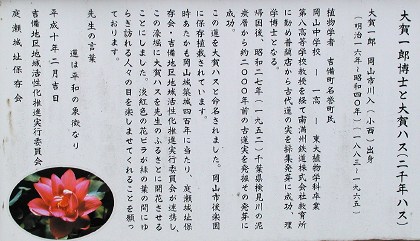 大賀一郎博士と大賀ハス(二千年ハス)
大賀一郎 岡山市川入(小西)出身
(明治一六年~昭和四〇年)(一八八三~一九六五)
植物学者 吉備町名誉町民
岡山中学校 ― 一高 ― 東大植物学科卒業
第八高等学校教授を経て南満州鉄道株式会社教育所
に勤め普蘭店から古代蓮の実を採集発芽に成功、理
学博士となる。
帰国後、昭和二七年(一九五二)千葉県検見川の泥
炭層から約二〇〇〇年前の古蓮実を発掘その発芽に
成功。
この蓮を大賀ハスと命名されました。岡山市後楽園
に保存植栽されています。
時あたかも岡山城築城四百年に当たり、庭瀬城址保
存会・吉備地区地域活性化推進実行委員会が連携し、
この濠堀に大賀ハスを先生のふるさとに開花させる
ことにしました。淡紅色の花ビラが緑の葉の間にゆ
らぎ訪れる人々の目を楽しませてくれることを願っ
ております。
先生の言葉
蓮は平和の象徴なり
平成十年二月吉日
吉備地区地域活性化推進実行委員会
庭瀬城址保存会